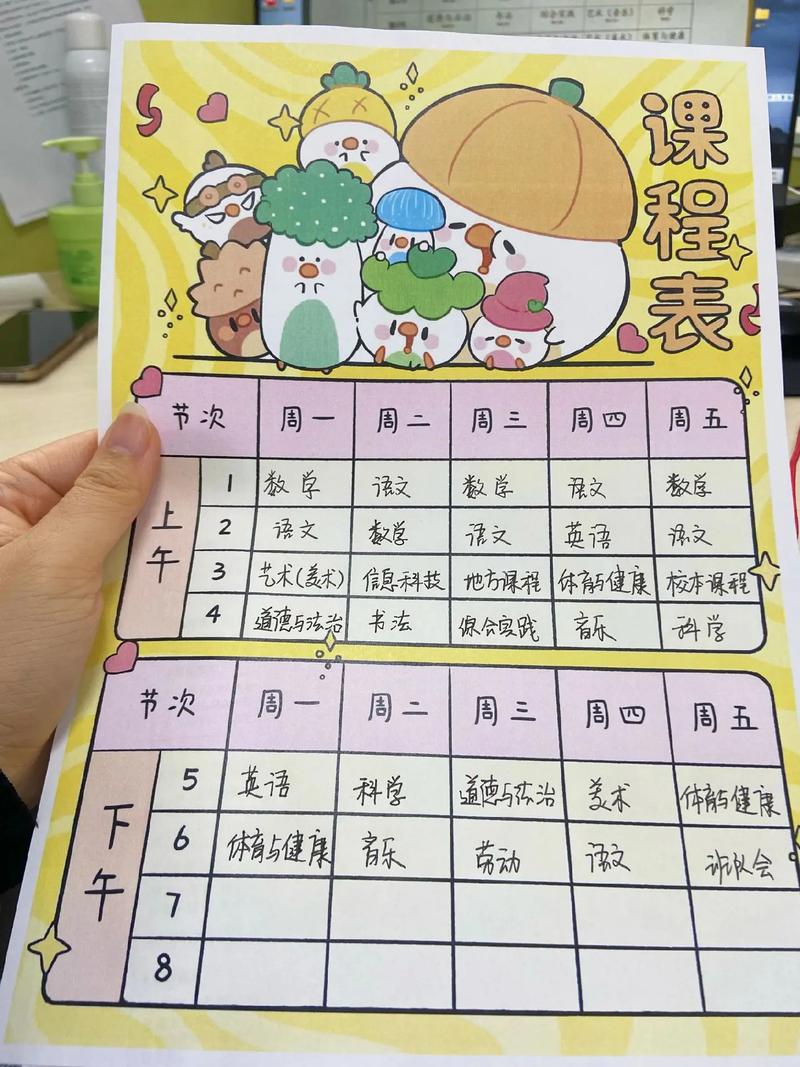 课程表
节次 周一 周二 周三 周四 周五
上午
1 数学 语文 数学 语文 数学
2 语文 数学 语文 英语 语文
3 艺术(美术) 信息科技 地方课程 体育与健康 校本课程
4 道德与法治 书法 综合实践 音乐 科学
节次 周一 周二 周三 周四 周五
下午
5 英语 科学 道德与法治 美术 体育与健康
6 体育与健康 音乐 劳动 语文 班队会
7
8